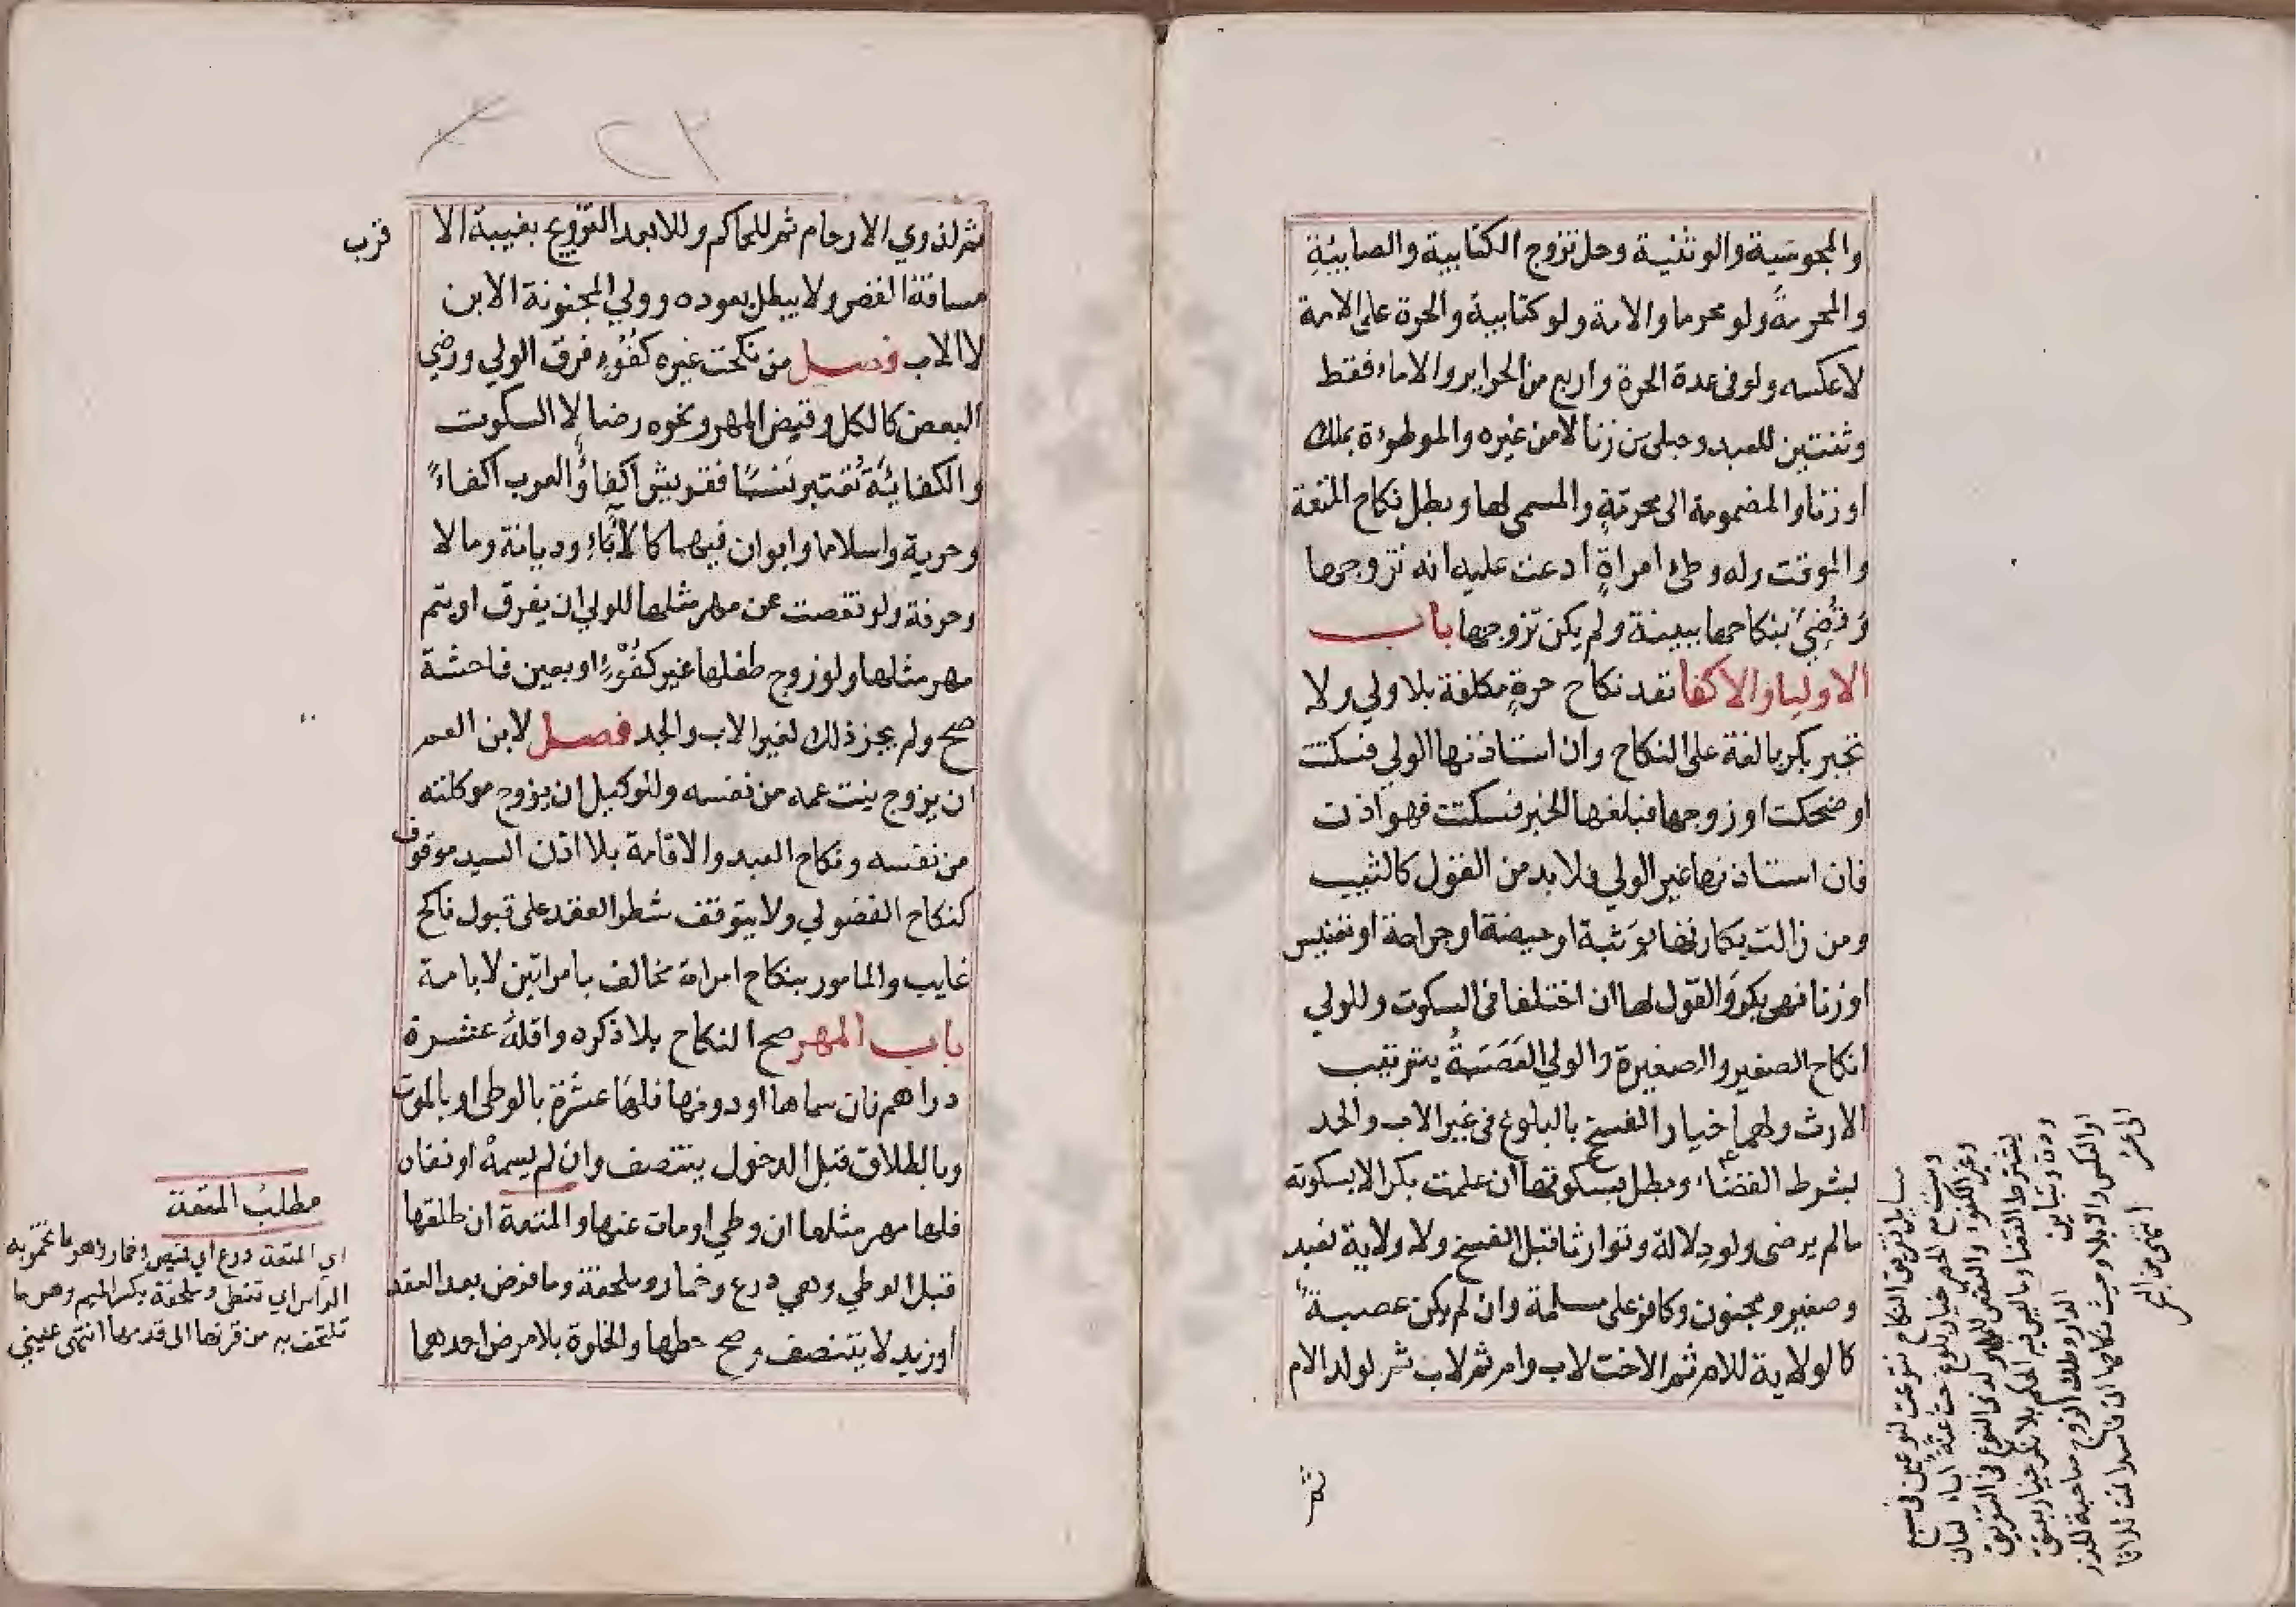 والمجوسية والوثنية وحل تزوج الكتابية والصابئية
والمحرمة ولو محرما والامة ولو كتابية والحرة على الامة
لا عكسه ولو فى عدة الحرة واربع من الحراير والاماء فقط
وثنتين للعبد وحبلى من زنا لا من غيره والموطوءة بملك
او زنا والمضمومة الى محرمة والمسمى لها وبطل نكاح المتعة
والموقت وله وطئ امراة ادعت عليه انه تزوجها
وقضي بنكاحها ببينة ولم يكن تزوجها باب
الاوليا والاكفا نفد نكاح حرة مكلفة بلا ولي ولا
تجبر بكر بالغة على النكاح وان استاذنها الولي فسكتت
او ضحكت او زوجها فبلغها الخبر فسكتت فهو اذن
فان استاذنها غير الولي فلا بد من القول كالثيب
ومن زالت بكارتها بوثبة او حيضة او جراحة او تعنيس
او زنا فهي بكر والقول لها ان اختلفا فى السكوت وللولي
انكاح الصغير والصغيرة والولي العصبة بترتيب
الارث ولهما خيار الفسخ بالبلوغ فى غير الاب والجد
بشرط القضاء وبطل بسكوتها ان علمت بكرا لا بسكوته
مالم يرضى ولو دلالة وتوارثا قبل الفسخ ولا ولاية لعبد
وصغير ومجنون وكافر على مسلمة وان لم يكن عصبة
كالولاية للام ثم الاخت لاب وام ثم لاب ثم لولد الام
ثم
مسايل تفريق النكاح تنوعت لنوعين فى سبع
ثم لذوي الارحام ثم للحاكم وللابعد التزويج بغيبة الا
قرب
مسافة القصر ولا يبطل بعوده وولي المجنونة الابن
لا الاب فصل من نكحت غيره كفوء فرق الولي ورضي
البعض كالكل وقبض المهر ونحوه رضا لا السكوت
والكفائة تعتبر نسبا فقريش اكفاؤ والعرب اكفاء
وحرية واسلاما وابوان فيهما كالاباء وديانة ومالا
وحرفة ولو نقصت عن مهر مثلها للولي ان يفرق او يتم
مهر مثلها ولو زوج طفلها غير كفوء او بعين فاحشة
صح ولم يجز ذلك لغير الاب والجد فصل لابن العم
ان يزوج بنت عمه من نفسه وللوكيل ان يزوج موكلته
من نفسه ونكاح العبد والاقامة بلا اذن السيد موقوف
كنكاح الفضولي ولا يتوقف شطر العقد على قبول ناكح
غايب والمامور بنكاح امراة مخالف بامراتين لا بامة
باب المهر صح النكاح بلا ذكره واقله عشرة
دراهم فان سماها او دونها فلها عشرة بالوطى او بالموت
وبالطلاق قبل الدخول ينتصف وان لم يسمه او نفاه
فلها مهر مثلها ان وطي او مات عنها والمتعة ان طلقها
قبل الوطي وهي درع وخمار وملحفة وما فرض بعد العقد
او زيد لا يتنصف وصح حطها والخلوة بلا مرض احدهما
مطلب المتعة
اي المتعة درع اي قميص وخمار وهو ما تخمر به
الراس اي تغطى وملحفة بكسر الميم وهى ما
تلتحف به من قرنها الى قدمها انتهى عيني